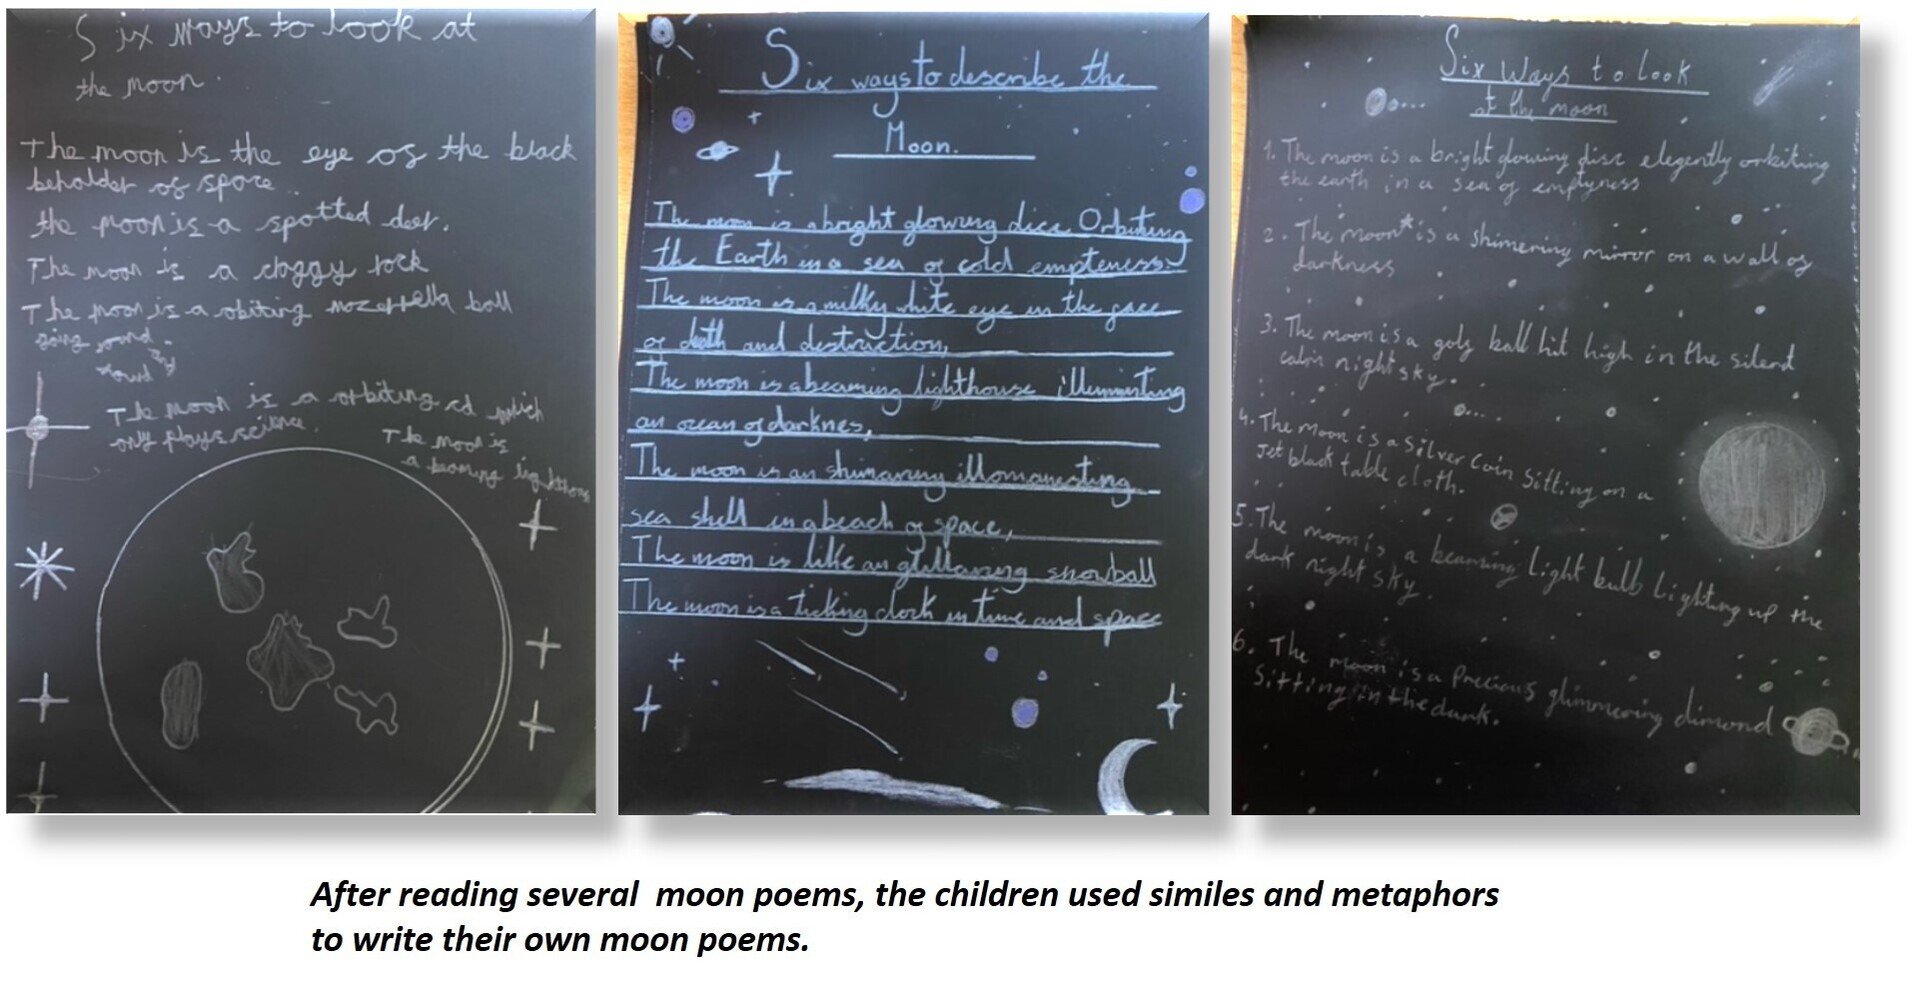 Six ways to look at
the moon.
The moon is the eye of the black
beholder of space.
the moon is a spotted deer.
The moon is a cloggy rock
The moon is a obiting mozerella ball
going round
and
round
The moon is a orbiting cd which
only plays science.
The moon is
a beaming lighthouse
Six ways to describe the
Moon.
The moon is a bright glowing disc Orbiting
the Earth in a sea of cold empteness.
The moon is a milky white eye in the face
of death and destruction,
The moon is a beaming lighthouse illuminting
an ocean of darknes,
The moon is an shimaring illomanating
sea shell in a beach of space,
The moon is like an glittaring snowball
The moon is a ticking clock in time and space
Six Ways to look
at the moon
1. The moon is a bright glowing disc elegently orbiting
the earth in a sea of emptyness
2. The moon is a shimering mirror on a wall of
darkness
3. The moon is a golf ball hit high in the silent
calm night sky.
4. The moon is a silver coin sitting on a
jet black table cloth.
5. The moon is a beaming light bulb lighting up the
dark night sky.
6. The moon is a precious glimmering dimond
sitting in the dark.
After reading several moon poems, the children used similes and metaphors
to write their own moon poems.